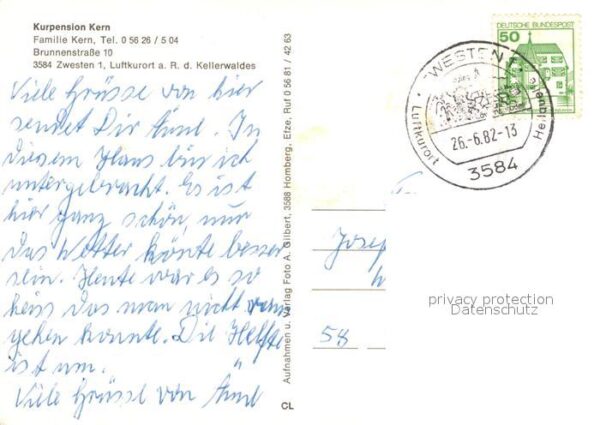 Kurpension Kern
Familie Kern, Tel. 0 56 26 / 5 04
Brunnenstraße 10
3584 Zwesten 1, Luftkurort a. R. d. Kellerwaldes
Viele Grüsse von hier
sendet Dir Änne. In
diesem Haus bin ich
untergebracht. Es ist
hier ganz schön, nur
das Wetter könte besser
sein. Heute war es so
heiss das man nicht
gehen konnte. Die Helfte
ist um.
Viele Grüsse von Änne
CL
Aufnahmen u. Verlag Foto A. Gilbert, 3588 Homberg, Efze, Ruf 0 56 81 / 42 63
DEUTSCHE BUNDESPOST
50
ZWESTEN 1
Luftkurort
26.-6.82-13
3584
Josep
58
privacy protection
Datenschutz